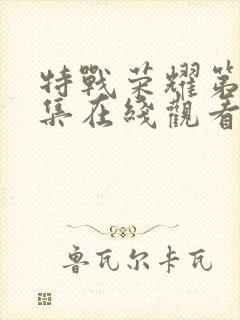 特戰荣耀第
集在綫觀看
鲁瓦尔卡瓦